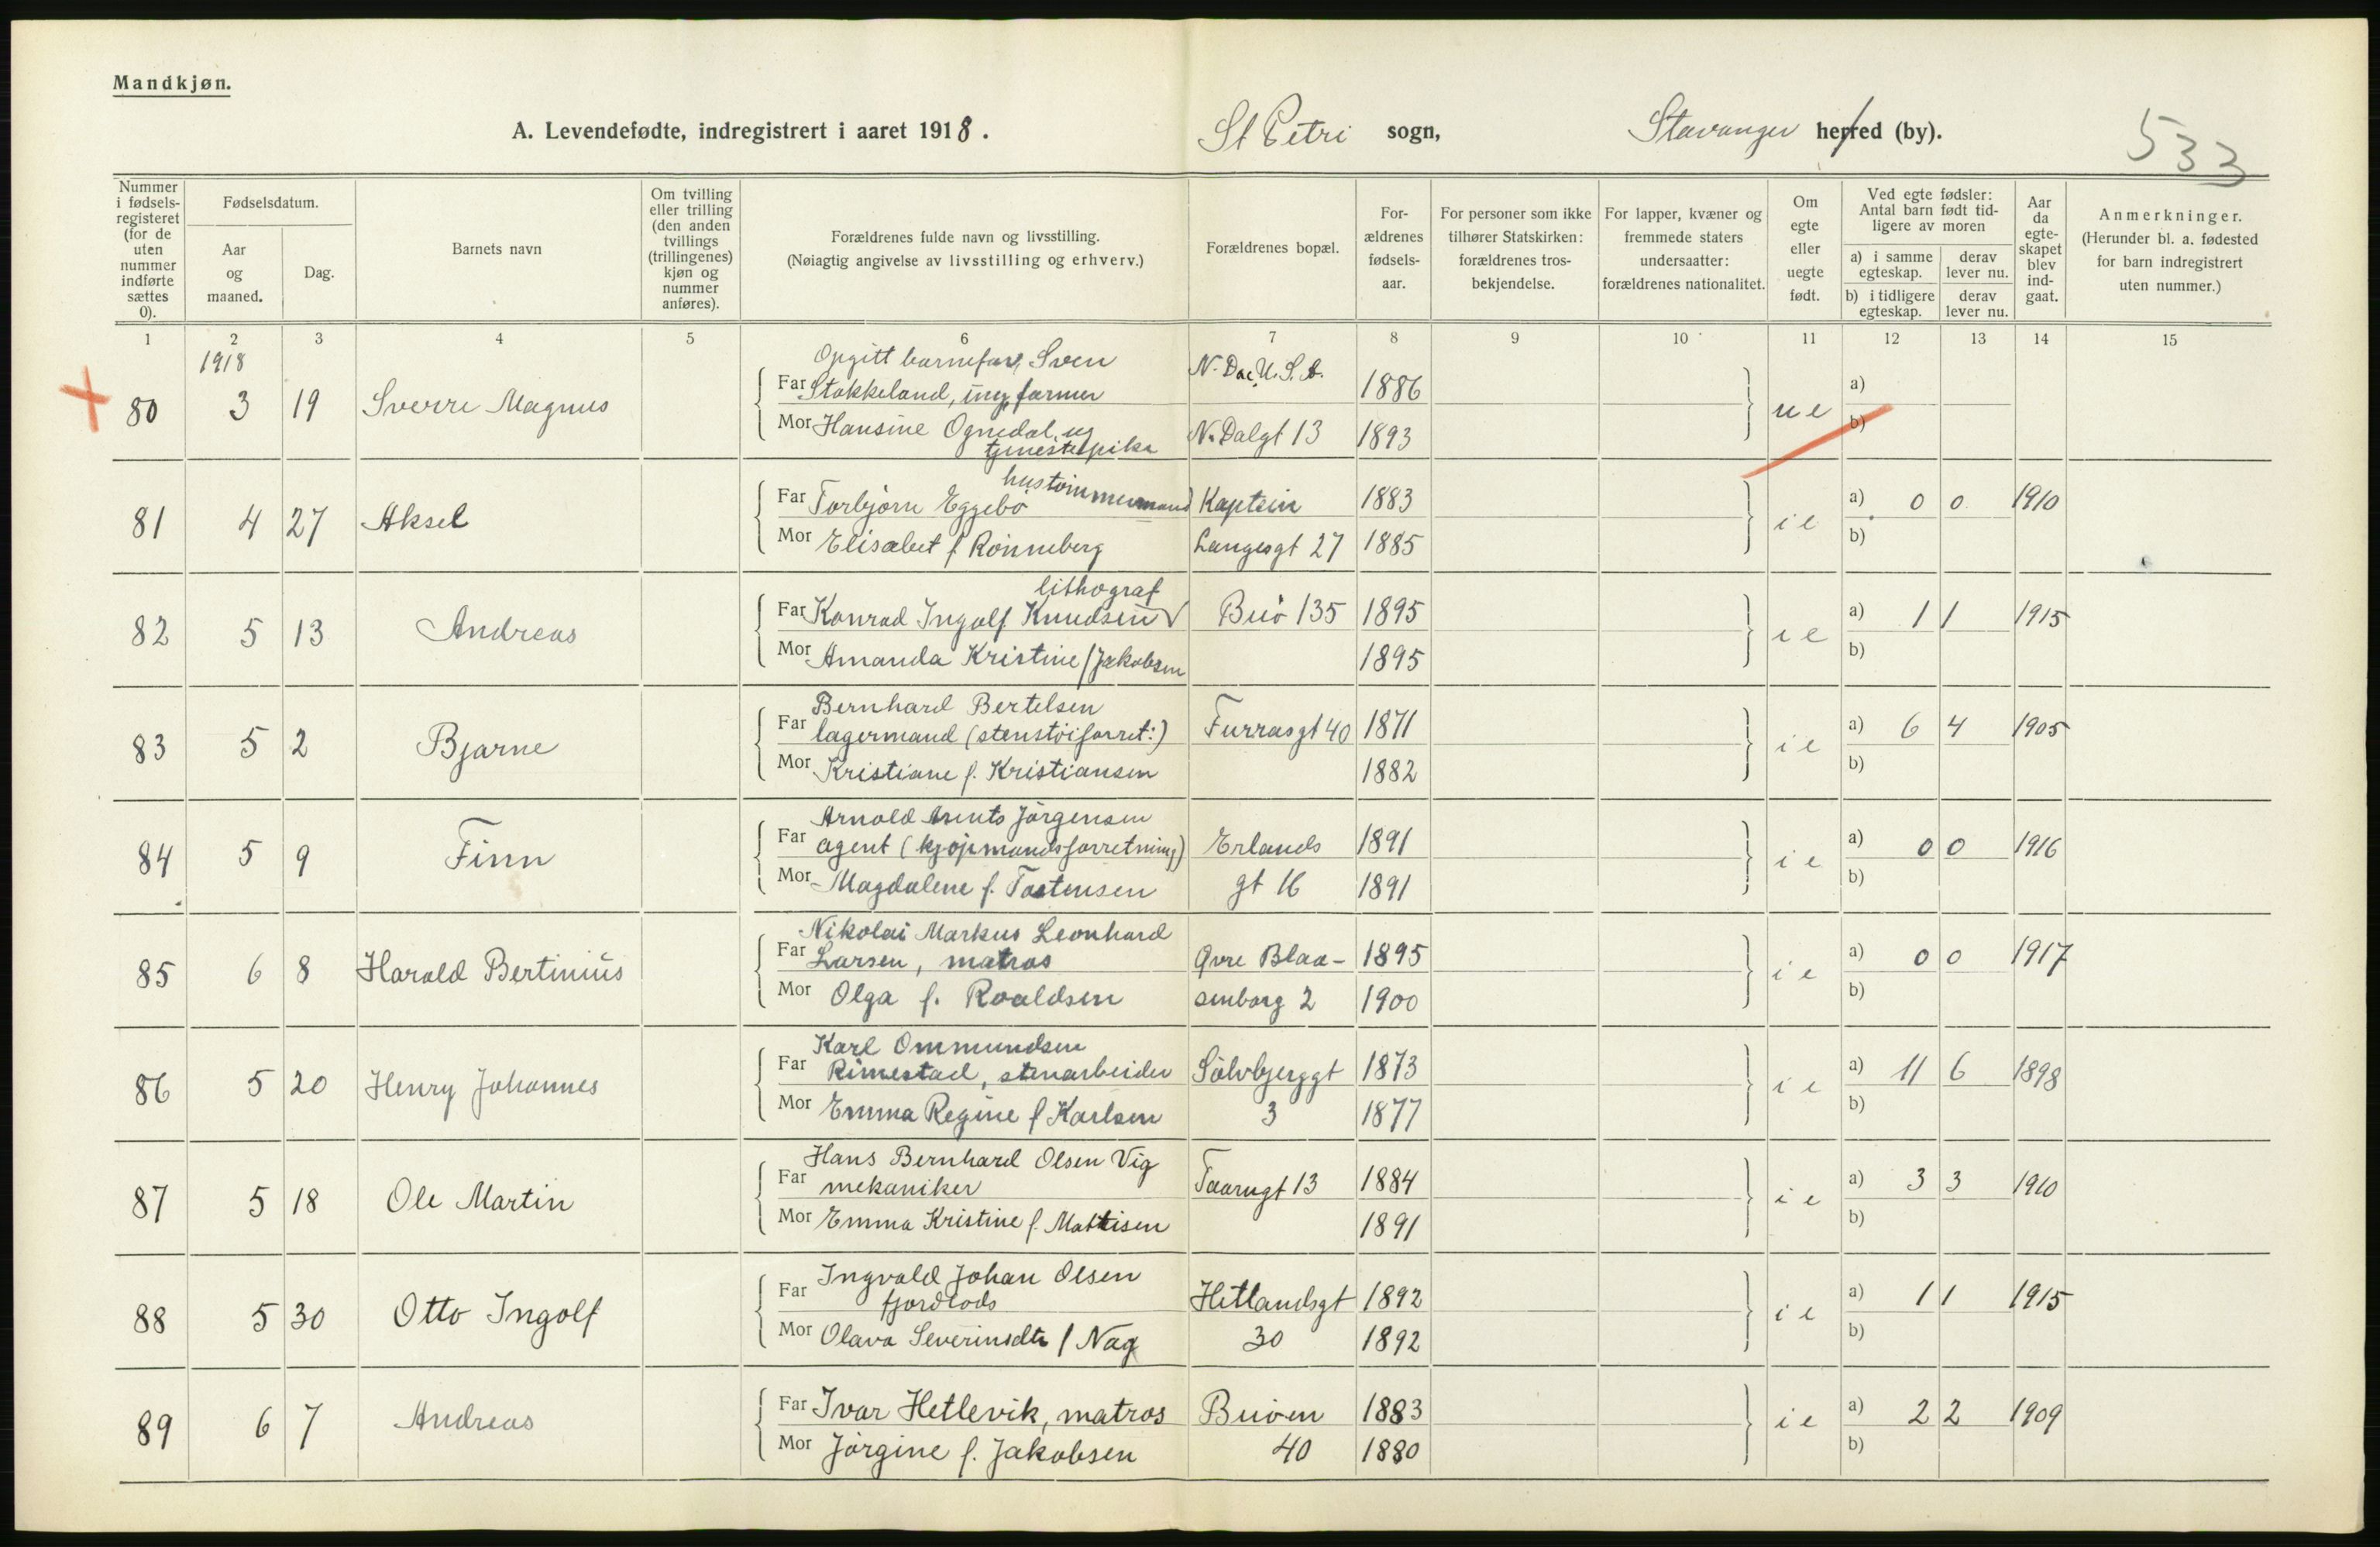 Mandkjøn.
A. Levendefødte, indregistrert i aaret 1918. St Petri sogn, Stavanger herred (by). 533
Nummer i fødselsregisteret (for de uten nummer indførte sættes 0).
Fødselsdatum.
Aar og maaned.
Dag.
Barnets navn
Om tvilling eller trilling (den anden tvillings (trillingenes) kjøn og nummer anføres).
Forældrenes fulde navn og livsstilling.
(Nøiagtig angivelse av livsstilling og erhverv.)
Forældrenes bopæl.
Forældrenes fødselsaar.
For personer som ikke tilhører Statskirken: forældrenes trosbekjendelse.
For lapper, kvæner og fremmede staters undersaatter: forældrenes nationalitet.
Om egte eller uegte født.
Ved egte fødsler: Antal barn født tidligere av moren
a) i samme egteskap. derav lever nu.
b) i tidligere egteskap. derav lever nu.
Aar da egteskapet blev indgaat.
Anmerkninger.
(Herunder bl. a. fødested for barn indregistrert uten nummer.)
1 2 3 4 5 6 7 8 9 10 11 12 13 14 15
1918
Opgitt barnefar, Sven N. Dac. U. S. A.
80 3 19 Sverre Magnus Far Stokkeland, ug farmer 1886 ue a)
Mor Hansine Ognedal, ug N. Dalgt 13 1893 b)
tjenestepike
hustømmermand
81 4 27 Aksel Far Torbjørn Eggebø Kaptein 1883 ie a) 0 0 1910
Mor Elisabet f Rønneberg Langesgt 27 1885 b)
lithograf
82 5 13 Andreas Far Konrad Ingolf Knudsen Buø 135 1895 ie a) 1 1 1915
Mor Amanda Kristine f Jakobsen 1895 b)
Bernhard Bertelsen
83 5 2 Bjarne Far lagermand (stenstøiforret:) Furrasgt 40 1871 ie a) 6 4 1905
Mor Kristiane f. Kristiansen 1882 b)
Arnold Arents Jørgensen
84 5 9 Finn Far agent (kjøpmandsforretning) Erlands 1891 ie a) 0 0 1916
Mor Magdalene f. Tostensen gt 16 1891 b)
Nikolai Markus Leonhard
85 6 8 Harald Bertinius Far Larsen, matros Øvre Blaa- 1895 ie a) 0 0 1917
Mor Olga f. Roaldsen senborg 2 1900 b)
Karl Ommundsen
86 5 20 Henry Johannes Far Rimestad, stenarbeider Sølvbjerggt 1873 ie a) 11 6 1898
Mor Emma Regine f Karlsen 3 1877 b)
Hans Bernhard Olsen Vig
87 5 18 Ole Martin Far mekaniker Taarngt 13 1884 ie a) 3 3 1910
Mor Emma Kristine f. Mattisen 1891 b)
Ingvald Johan Olsen
88 5 30 Otto Ingolf Far fjordlods Hetlandsgt 1892 ie a) 1 1 1915
Mor Olava Severinsdtr f Nag 30 1892 b)
89 6 7 Andreas Far Ivar Hetlevik, matros Buøen 1883 ie a) 2 2 1909
Mor Jørgine f. Jakobsen 40 1880 b)